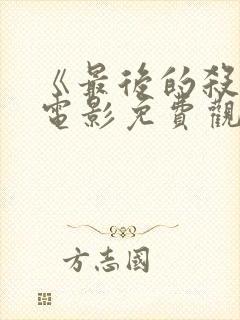 《最後的殺
電影免費觀
方志國